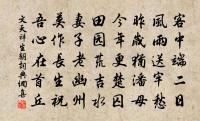 客中端二日
風雨送牢愁
昨歲猶潘母
今年更楚囚
田園荒吉水
妻子老幽州
莫作長生祝
吾心在首丘
文天祥生朝詞典網